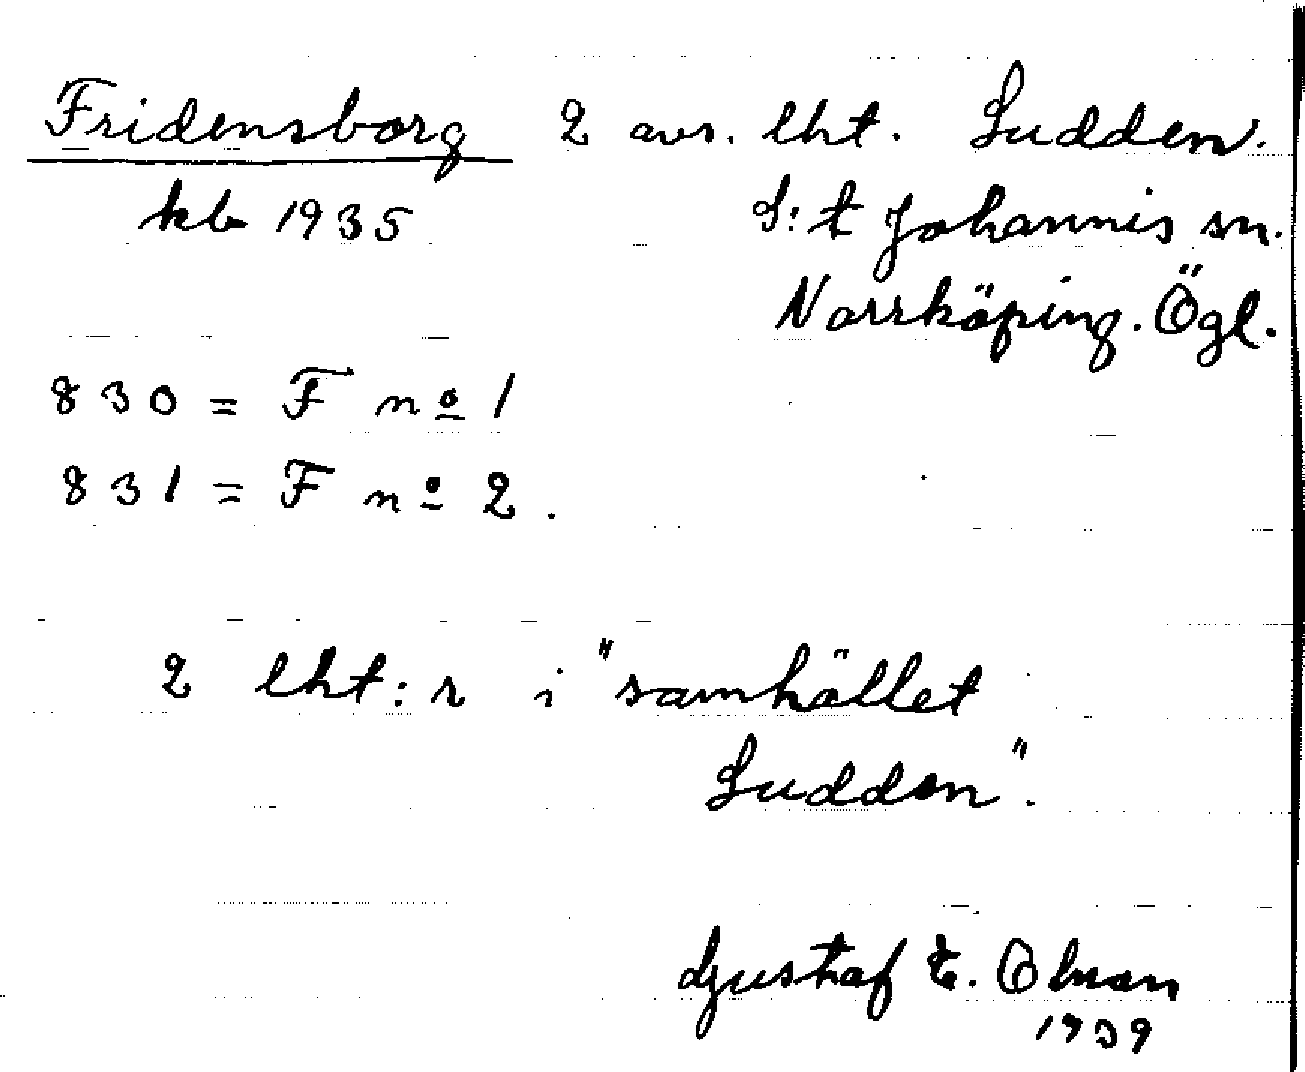 Fridensborg 2 avs. lht. Sudden.
kb 1935 S:t Johannis sn.
Norrköping. Ögl.
830 = F nº 1
831 = F nº 2.
2 lht:r i "samhället
Sudden".
Gustaf E. Olson
1939